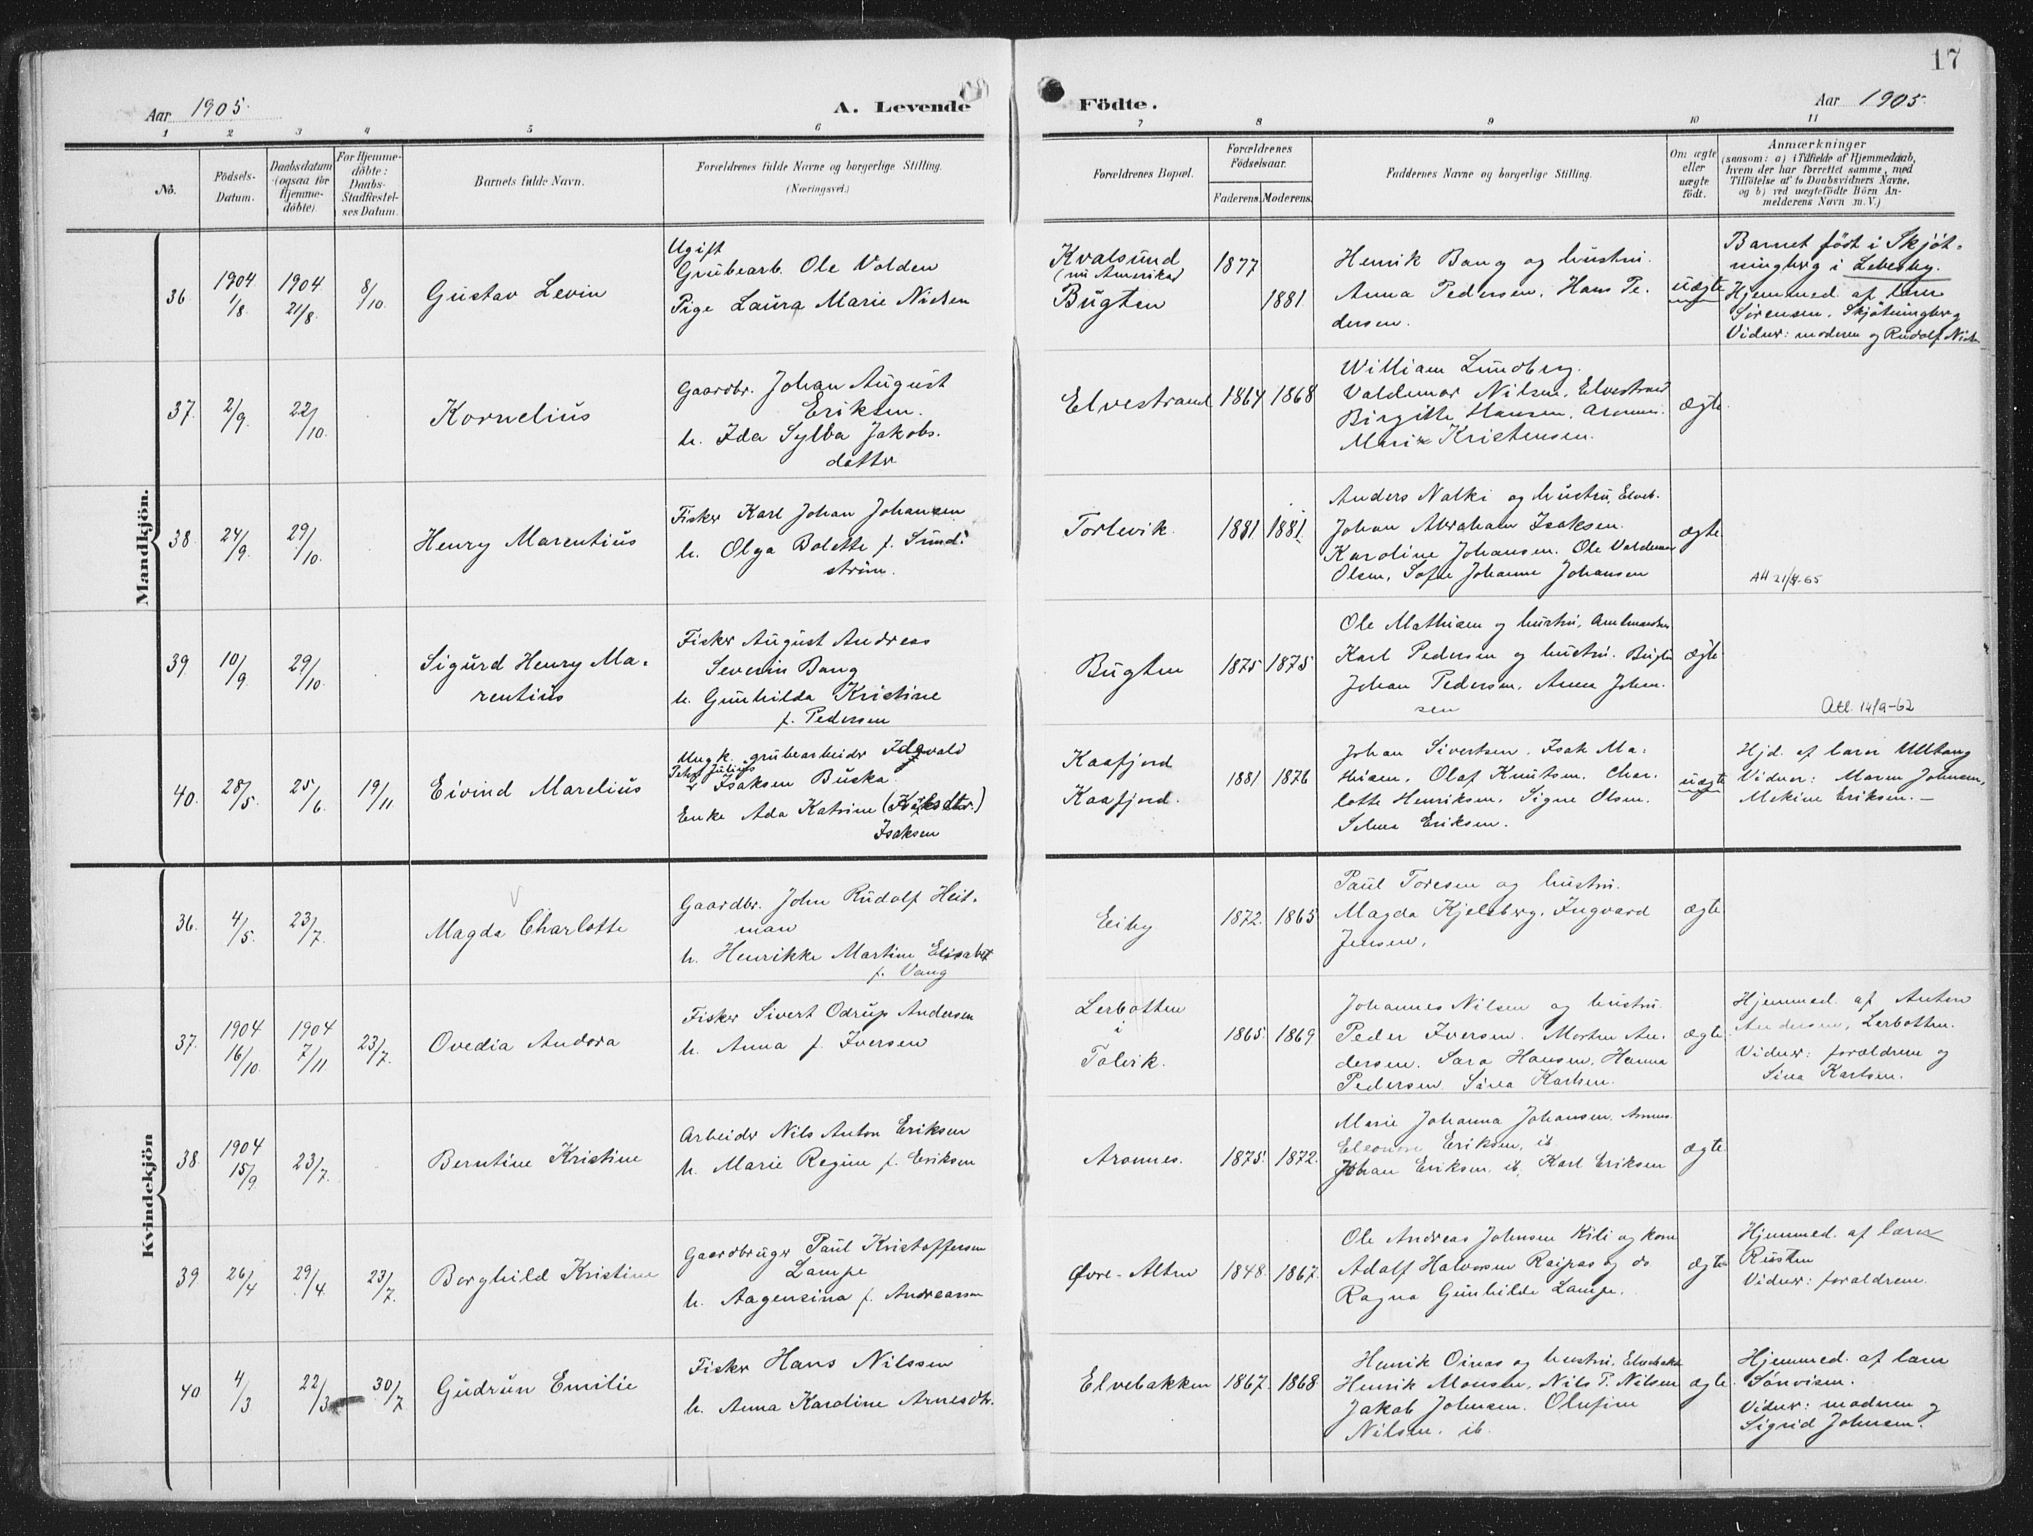 17
Aar 1905.
A. Levende
Födte.
Aar 1905.
1 2 3 4 5 6 7 8 9 10 11
No.
Födsels-
Datum.
Daabsdatum
(ogsaa for
Hjemme-
döbte)
For Hjemme-
döbte:
Daabs-
Stadfæstel-
ses Datum.
Barnets fulde Navn.
Forældrenes fulde Navne og borgerlige Stilling.
(Næringsvei.)
Forældrenes Bopæl.
Forældrenes
Födselsaar.
Faderens. Moderens.
Faddernes Navne og borgerlige Stilling.
Om ægte
eller
uægte
födt.
Anmærkninger
(saasom: a) i Tilfælde af Hjemmedaab,
hvem der har forrettet samme, med
Tilföielse af to Daabsvidners Navne,
og b) ved uægtefödte Börn An-
melderens Navn m. V.)
Mandkjön.
36
1904
1/8
1904
21/8
8/10
Gustav Levin
Ugift
Grubearb. Ole Volden
Pige Laura Marie Nielsen
Kvalsund
(nu Amerika)
Bugten
1877
1881
Henrik Bang og hustru.
Anna Pedersen, Hans Pe-
dersen.
uægte
Barnet född i Skjöt-
ningberg i Lebesby.
Hjemmed. af lærer
Sörensen, Skjötningberg
Vidner: moderen og Rudolf Niels
37.
2/9
22/10
Kornelius
Gaardbr. Johan August
Eriksen.
h. Ida Sylba Jakobs.
datter
Elvestrand
1864
1868
William Lundberg.
Valdemar Nilsen, Elvestrand
Birgitte Hansen, Aronnes.
Marie Kristensen.
ægte
38.
24/9
29/10
Henry Marentius
Fisker Karl Johan Johansen
h. Olga Bolette f. Sund-
ström.
Torlevik
1881
1881
Anders Nalki og hustru, Elveb.
Johan Abraham Isaksen.
Karoline Johansen. Ole Valdemar
Olsen, Sofie Johanne Johansen
ægte
Att 21/4-65
39.
10/9
29/10
Sigurd Henry Ma-
rentius
Fisker August Andreas
Severin Bang
h. Gunhilda Kristine
f. Pedersen
Bugten
1875
1875
Ole Mathisen og hustru,
Karl Pedersen og hustru. Bugten
Johan Pedersen, Anna Johan.
sen
ægte
Att. 14/9-62
40.
28/5.
25/6
19/11
Eivind Marelius
Ungk. grubearbeider
Peter Julius
Isaksen Buska.
Enke Ada Katrine
Isaksen
Kaafjord
Kaafjord.
1881
1876
Johan Sivertsen. Isak Ma-
thisen. Olaf Knutsen. Char.
lotte Henriksen. Signe Olsen.
Selma Eriksen.
uægte
Hjd. af lærer Ulltang
Vidner: Maren Johnsen,
Mekine Eriksen.—
Kvindekjön
36.
4/5.
23/7
Magda Charlotte
Gaardbr. John Rudolf Heit-
man
h. Henrikke Martine Elisabet
f. Vang
Eiby
1872.
1865
Paul Toresen og hustru.
Magda Kjelsberg. Ingvard
Jensen.
ægte
37.
1904
16/10
1904
7/11
23/7.
Ovedia Andora
Fisker Sivert Odrup Andersen
h. Anna f. Iversen
Lerbotten
i
Talvik.
1865.
1869
Johannes Nilsen og hustru.
Peder Iversen. Morten An.
dersen. Sara Hansen. Hanna
Pedersen. Sina Karlsen.
ægte
Hjemmed. af Anton
Andersen, Lerbotten.
Vidner: forældrene og
Sina Karlsen.
38.
1904
15/9.
23/7.
Berntine Kristine
Arbeider Nils Anton Eriksen
h. Marie Regine f. Eriksen
Aronnes.
1875.
1872.
Marie Johanna Johansen, Aronnes.
Eleonore Eriksen, ib
Johan Eriksen ib, Karl Eriksen
ægte
39.
26/4
29/4.
23/7.
Borghild Kristine
Gaardbruger Paul Kristoffersen
Lampe
h. Aagensina f. Andreassen
Øvre-Alten
1848.
1867.
Ole Andreas Johnsen Kili og kone
Adolf Halvorsen Raipas og do
Ragna Gunhilde Lampe.
ægte
Hjemmed. af lærer
Rusten
Vidner: foraldrene.
40
4/3
22/3
30/7
Gudrun Emilie
Fisker Hans Nilssen
h. Anna Karoline Arnesdtr.
Elvebakken
1867.
1868
Henrik Oinas og hustru, Elvebakk
Henrik Monsen, Nils P. Nilsen
Jakob Johnsen. Olufine
Nilsen. ib.
ægte.
Hjemmed. af lærer
Sönvisen.
Vidner: moderen og
Sigrid Johnsen.